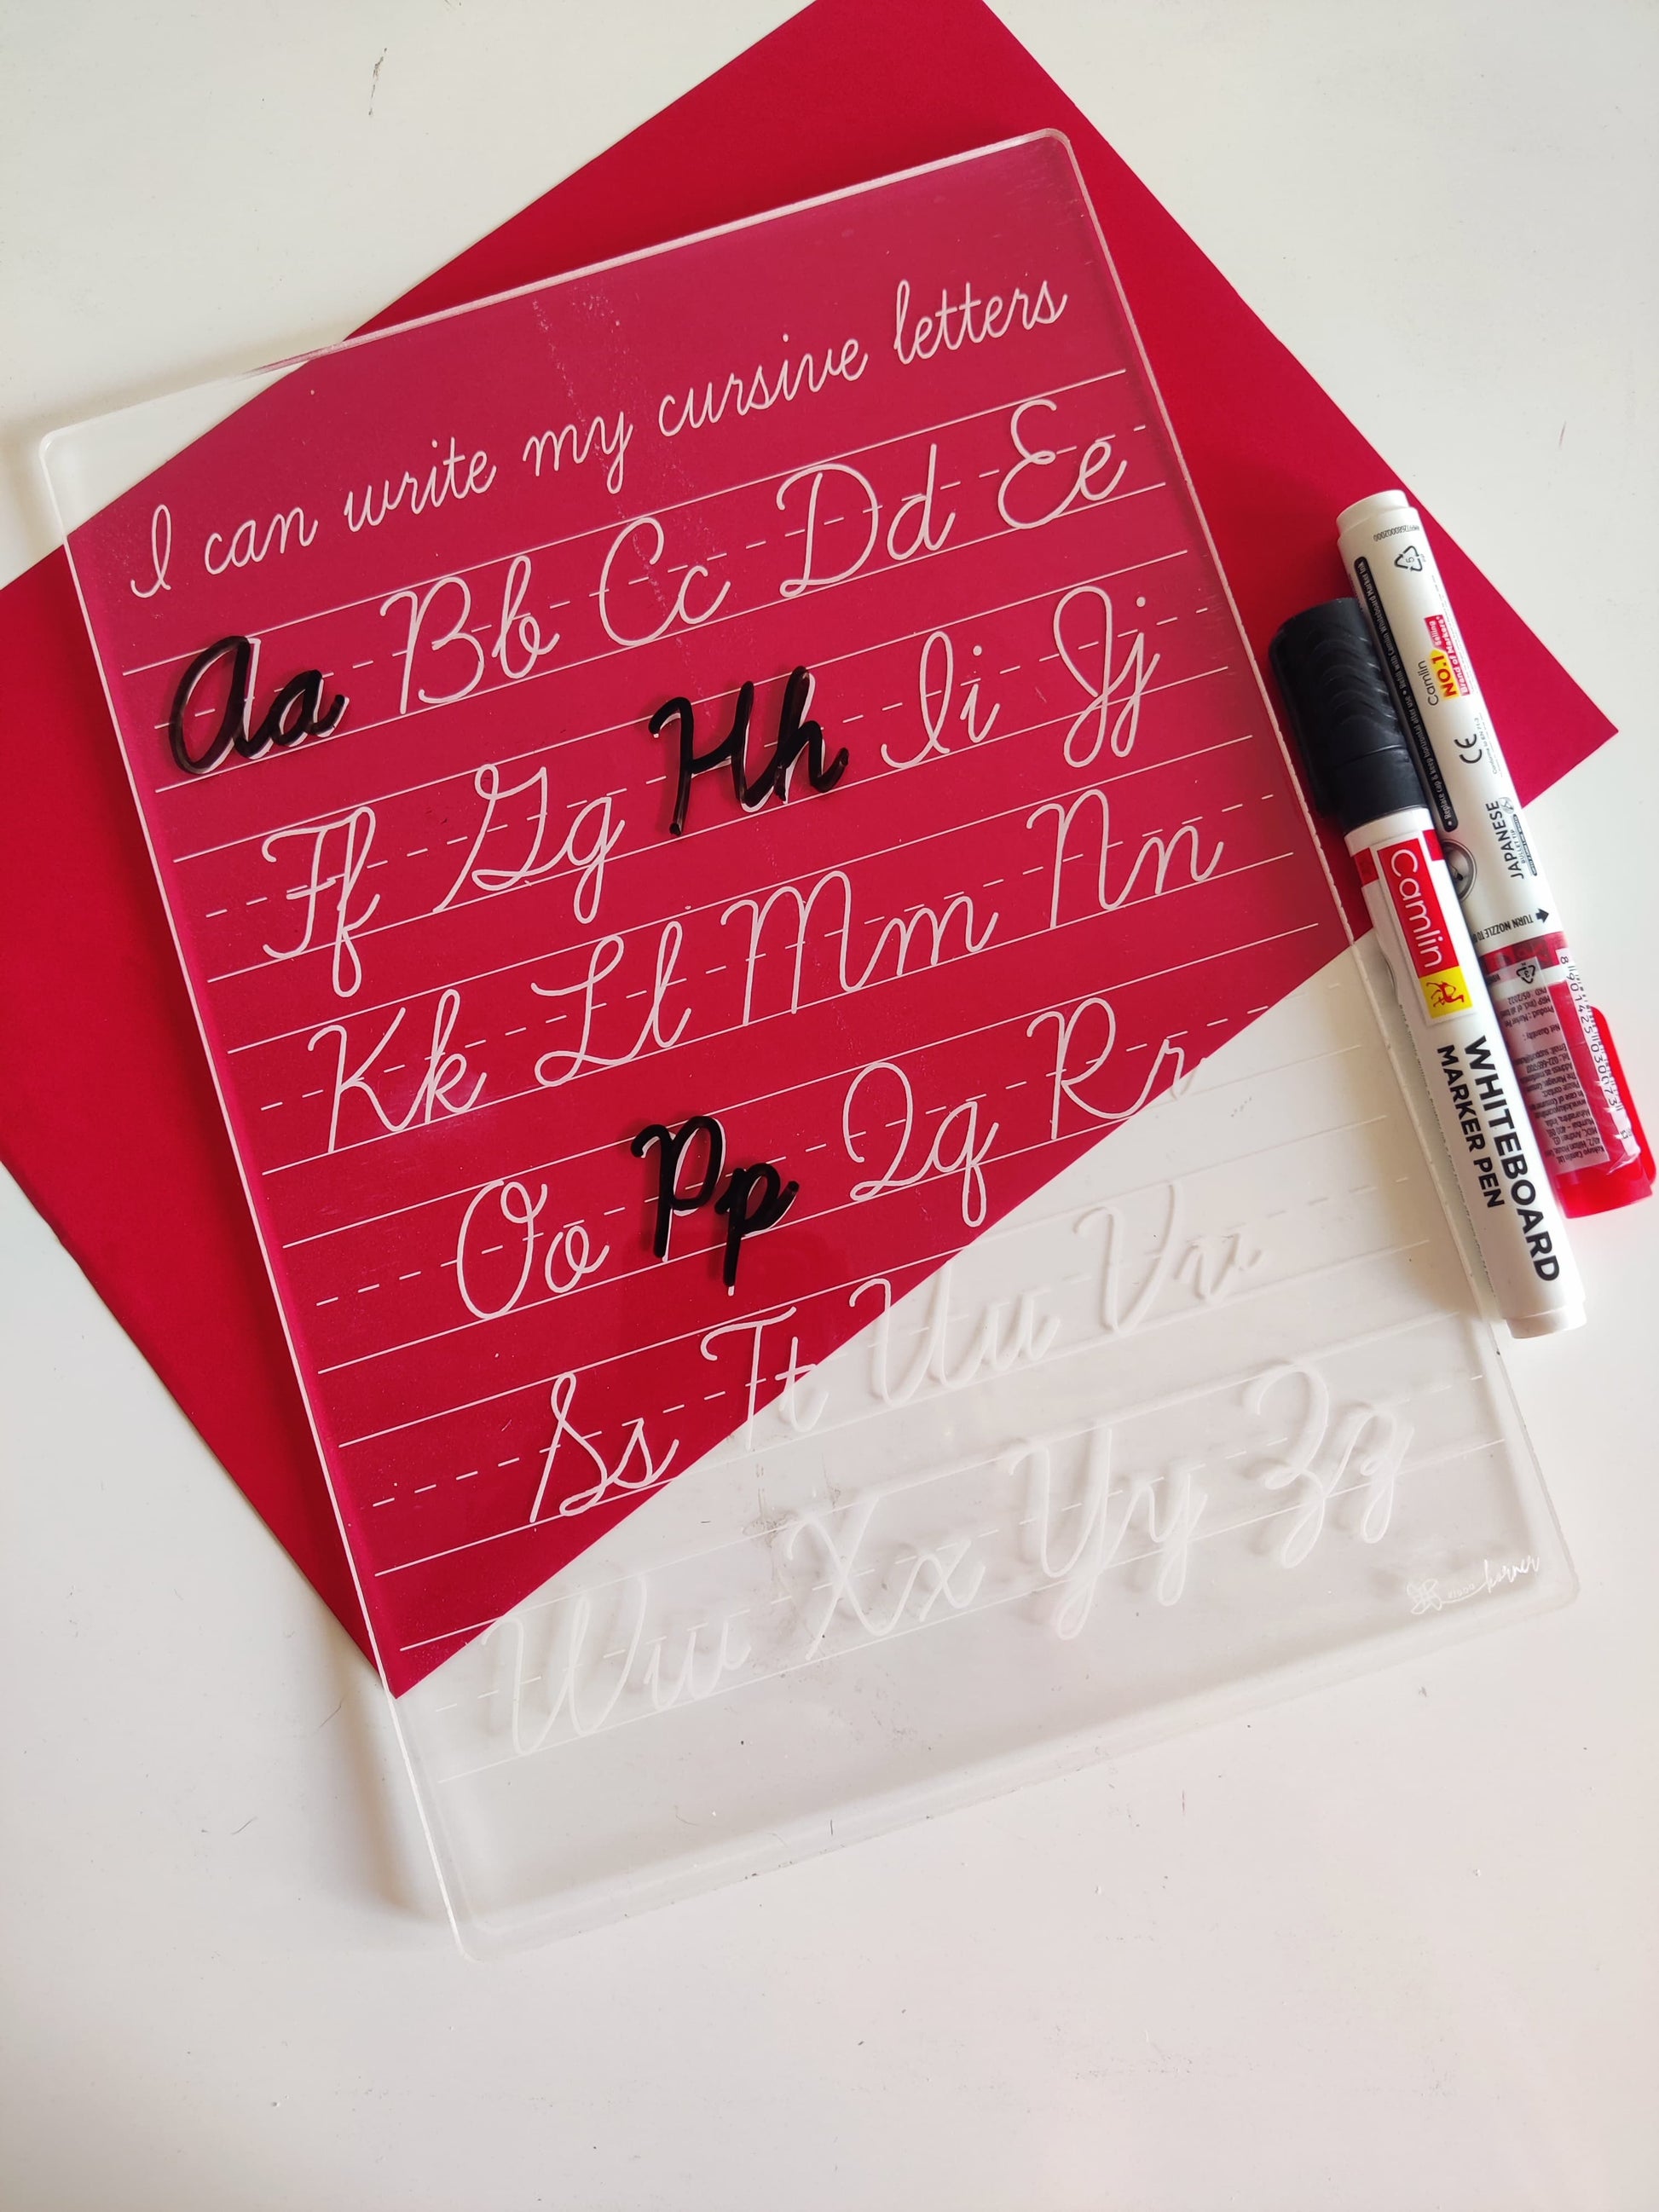 I can write my cursive letters
Aa Bb Cc Dd Ee
Ff Gg Hh Ii Jj
Kk Ll Mm Nn
Oo Pp Qq Rr
Ss Tt Uu Vv
Ww Xx Yy Zz
korner
Camlin
WHITEBOARD
MARKER PEN
Camlin
NO.1 Selling
Brand of Markers*
CE
JAPANESE
BULLET TIP
TURN NOZZLE TO
8901425030073